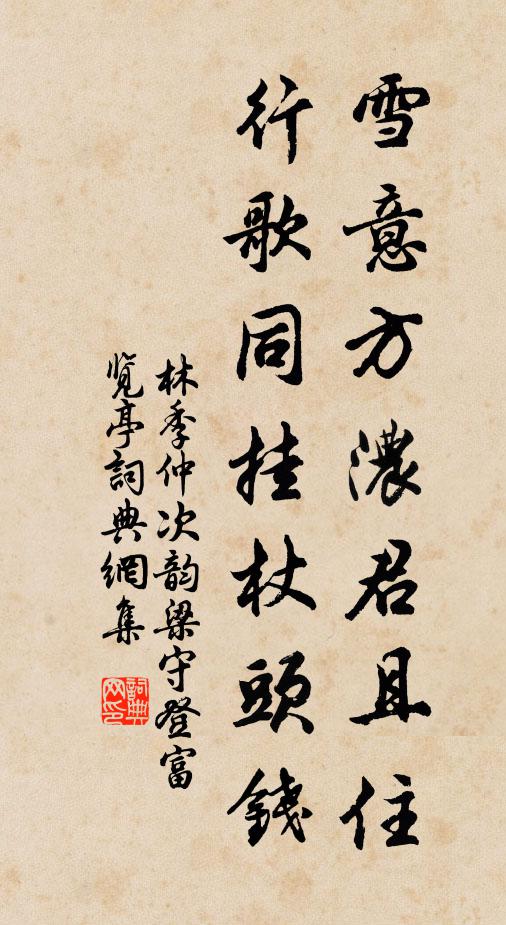 雪意方濃君且住
行歌同挂杖頭錢
林季仲次韵梁守登富
览亭詞典網集
詞典网印